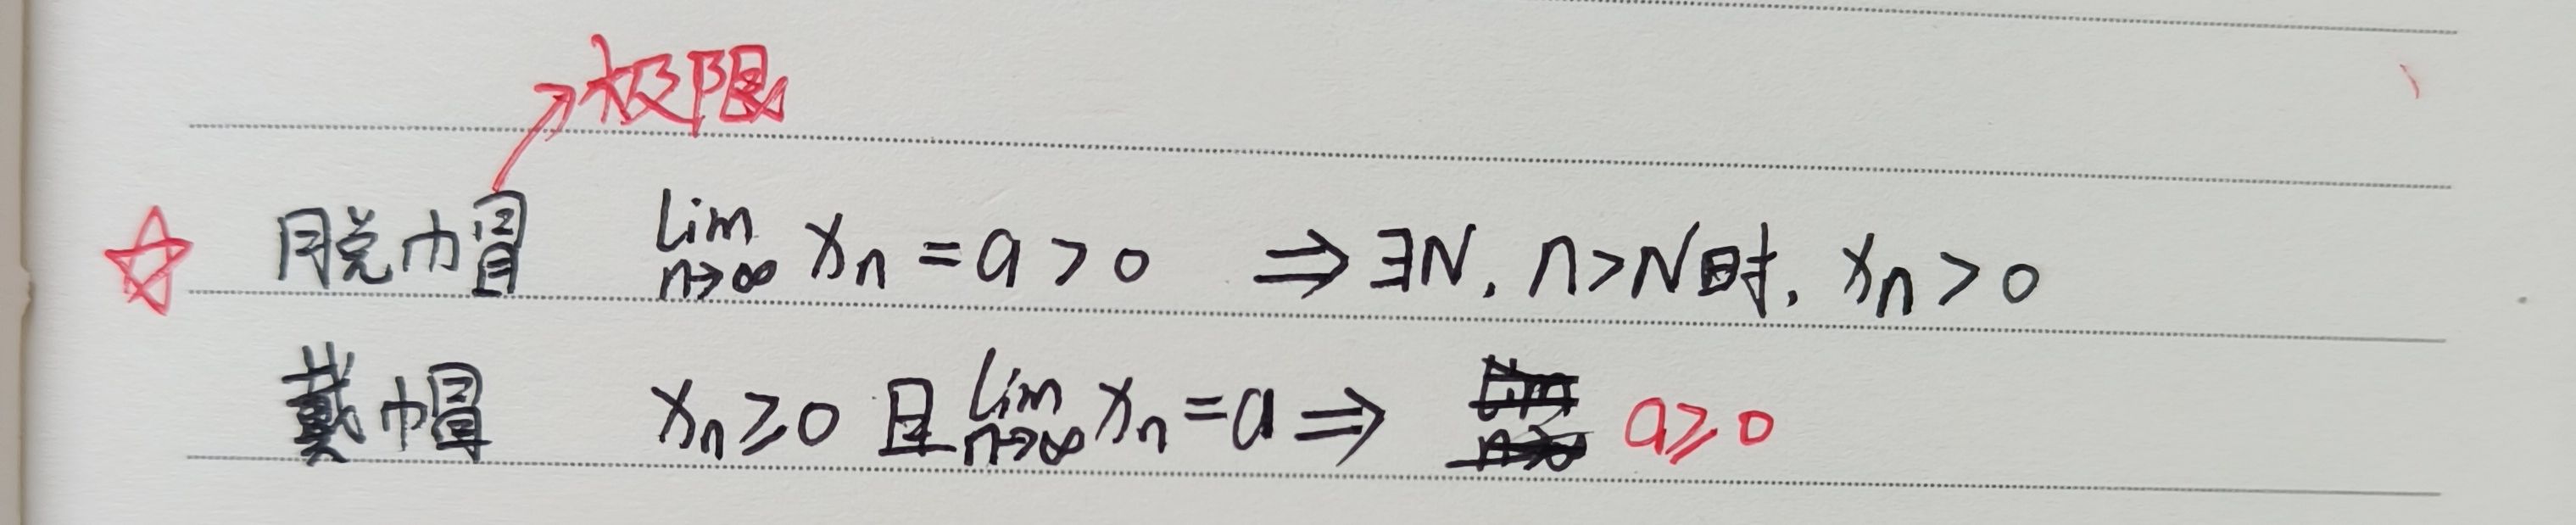 极限
☆ 脱帽 lim n→∞ xn = a > 0 ⇒ ∃N, n>N时, xn > 0
戴帽 xn ≥ 0 且 lim n→∞ xn = a ⇒ a ≥ 0